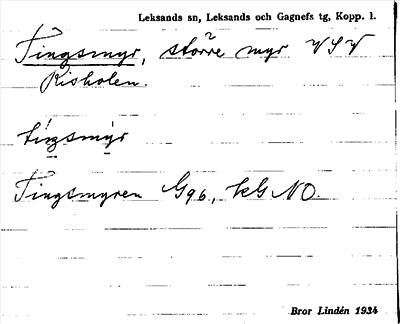 Leksands sn, Leksands och Gagnefs tg, Kopp. l.
Tingsmyr, större myr VSV
Risholen.
tiṇgsmyr
Tingsmyren G96, kG NO.
Bror Lindén 1934